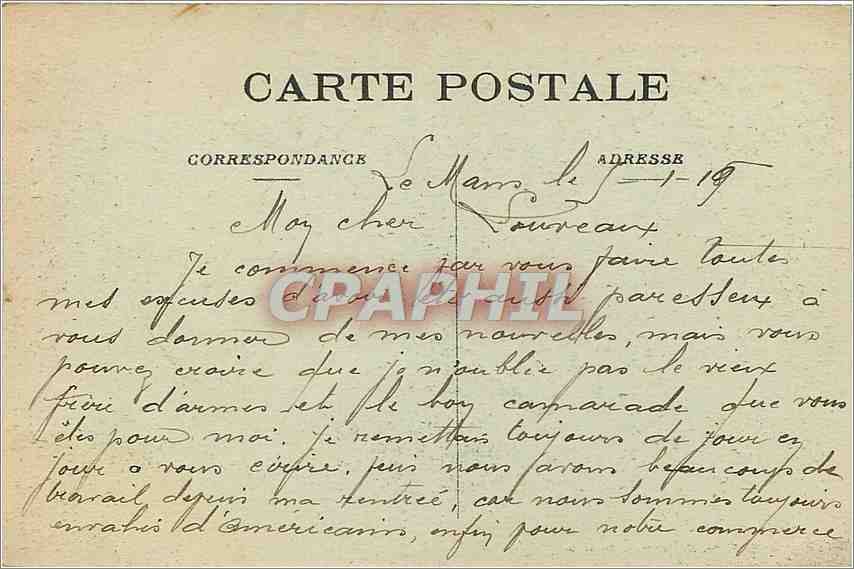 CARTE POSTALE
CORRESPONDANCE ADRESSE
Le Mans le 5-1-19
Moy cher Louveaux
Je commence par vous faire toutes
mes excuses d'avoir été aussi paresseux à
vous donner de mes nouvelles, mais vous
pouvez croire que je n'oublie pas le vieux
frère d'armes et le boy camarade que vous
êtes pour moi. Je remettais toujours de jour en
jour a vous écrire. puis nous avons beaucoups de
travail depuis ma rentrée, car nous sommes toujours
envahis d'Américains, enfin pour notre commerce
CPAPHIL